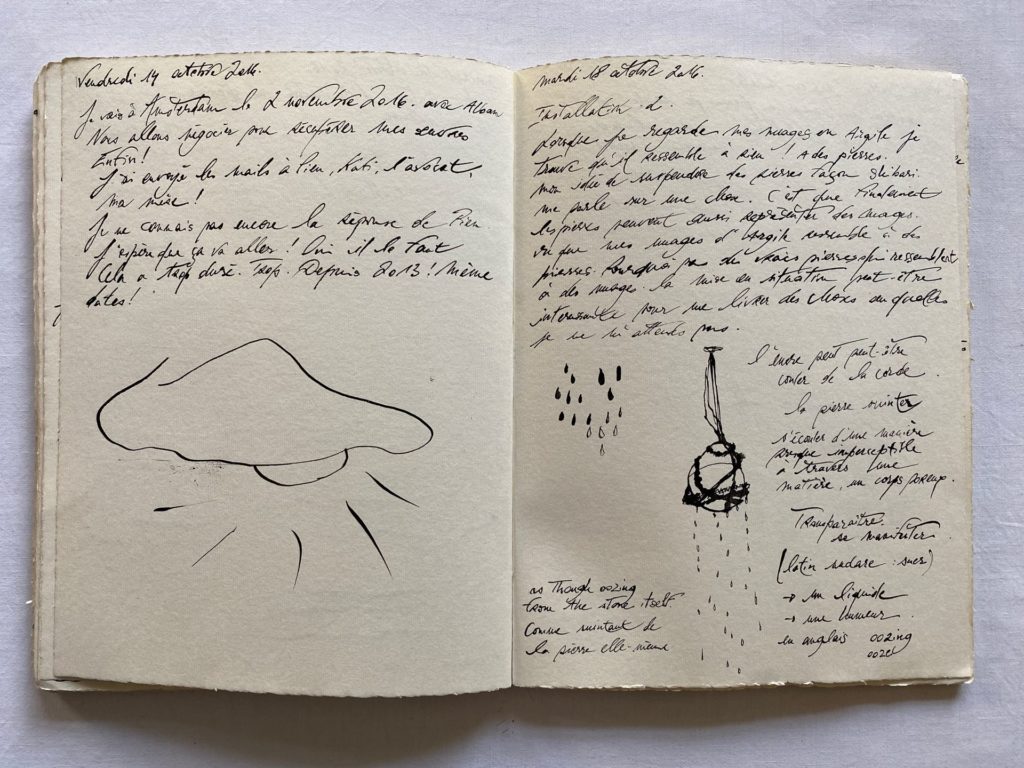 Vendredi 14 octobre 2016.
Je vais à Amsterdam le 2 novembre 2016. avec Alban
Nous allons négocier pour récupérer mes œuvres
Enfin!
J'ai envoyé les mails à Lien, Kati, l'avocat,
ma mère!
Je ne connais pas encore la réponse de
J'espère que ça va aller! Oui il le faut
Cela a trop duré. Trop. Depuis 2013! Même
avtes!
mardi 18 octobre 2016.
Installation 2.
Lorsque je regarde mes nuages en Argile je
trouve qu'il ressemble à rien! A des pierres.
mon idée de suspendre des pierres façon Shibari
me parle sur une chose. C'est que finalement
les pierres peuvent aussi représenter des nuages.
vu que mes nuages d'Argile ressemble à des
pierres. Pourquoi pas de vraies pierres qui ressemblent
à des nuages. la mise en situation peut-être
interessante pour me livrer des choses auquelles
je ne m'attends pas.
l'encre peut peut-être
couler de la corde.
la pierre suinter
s'écouler d'une manière
presque imperceptible
à travers une
matière, un corps poreux.
Transparaître.
se manifester
(latin sudare: suer)
→ un liquide
→ une humeur.
en anglais oozing
ooze
as though oozing
from the stone itself.
Comme suintant de
la pierre elle-même